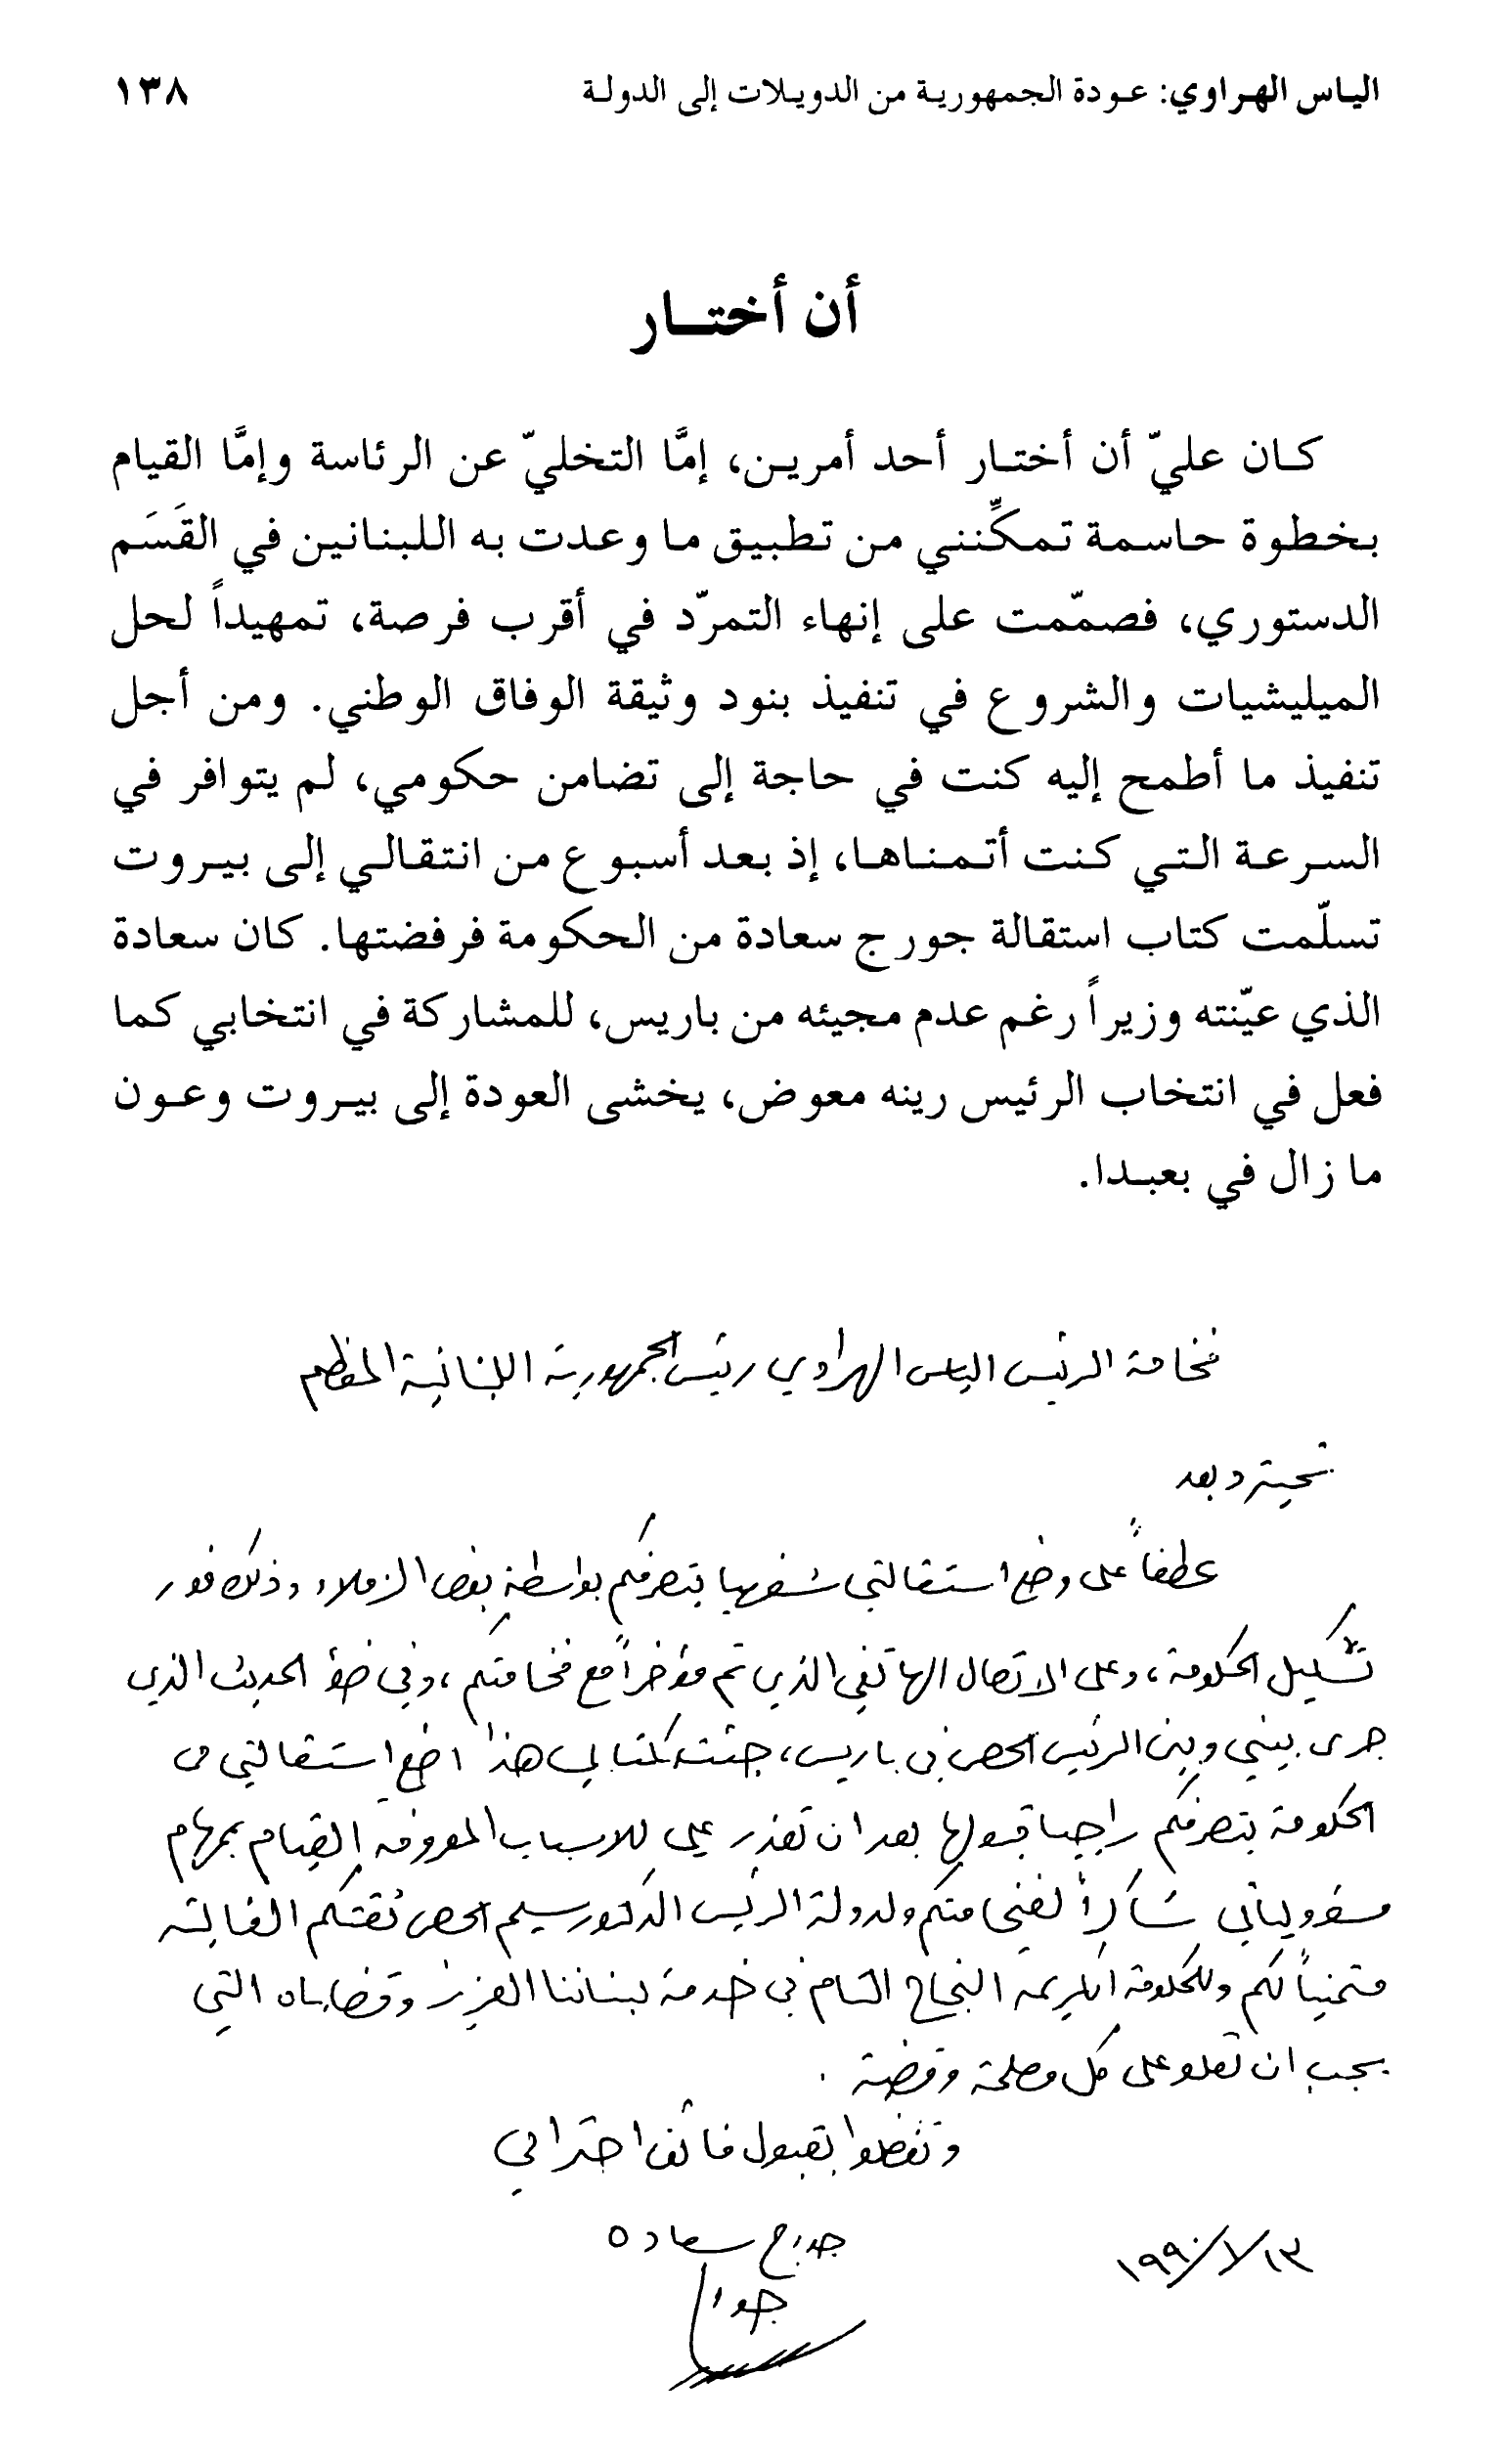 الياس الهراوي: عودة الجمهورية من الدويلات إلى الدولة ١٣٨
أن أختار
كان عليّ أن أختار أحد أمرين، إمَّا التخليّ عن الرئاسة وإمَّا القيام
بخطوة حاسمة تمكِّنني من تطبيق ما وعدت به اللبنانين في القَسَم
الدستوري، فصمّمت على إنهاء التمرّد في أقرب فرصة، تمهيداً لحل
الميليشيات والشروع في تنفيذ بنود وثيقة الوفاق الوطني. ومن أجل
تنفيذ ما أطمح إليه كنت في حاجة إلى تضامن حكومي، لم يتوافر في
السرعة التي كنت أتمناها، إذ بعد أسبوع من انتقالي إلى بيروت
تسلّمت كتاب استقالة جورج سعادة من الحكومة فرفضتها. كان سعادة
الذي عيّنته وزيراً رغم عدم مجيئه من باريس، للمشاركة في انتخابي كما
فعل في انتخاب الرئيس رينه معوض، يخشى العودة إلى بيروت وعون
ما زال في بعبدا.
فخامة الرئيس الياس الهراوي رئيس الجمهورية اللبنانية المعظم
تحية وبعد
عطفاً على وضع استقالتي شفهيا بتصرفكم بواسطة بعض الزملاء وذلك فور
تشكيل الحكومة، وعلى الاتصال الهاتفي الذي تم مؤخراً مع فخامتكم، وفي ضؤ الحديث الذي
جرى بيني وبين الرئيس الحص في باريس، جئت بكتابي هذا اضع استقالتي من
الحكومة بتصرفكم راجيا قبولها بعد ان تعذر علي للاسباب المعروفة القيام بمهام
مسؤولياتي شاكراً لفخامتكم ولدولة الرئيس الدكتور سليم الحص ثقتكم الغالية
متمنياً لكم وللحكومة الكريمة النجاح التام في خدمة لبناننا العزيز وقضاياه التي
يجب ان تعلو على كل مصلحة وقضية.
وتفضلوا بقبول فائق احترامي
جورج سعاده
١٣/١/١٩٩٠